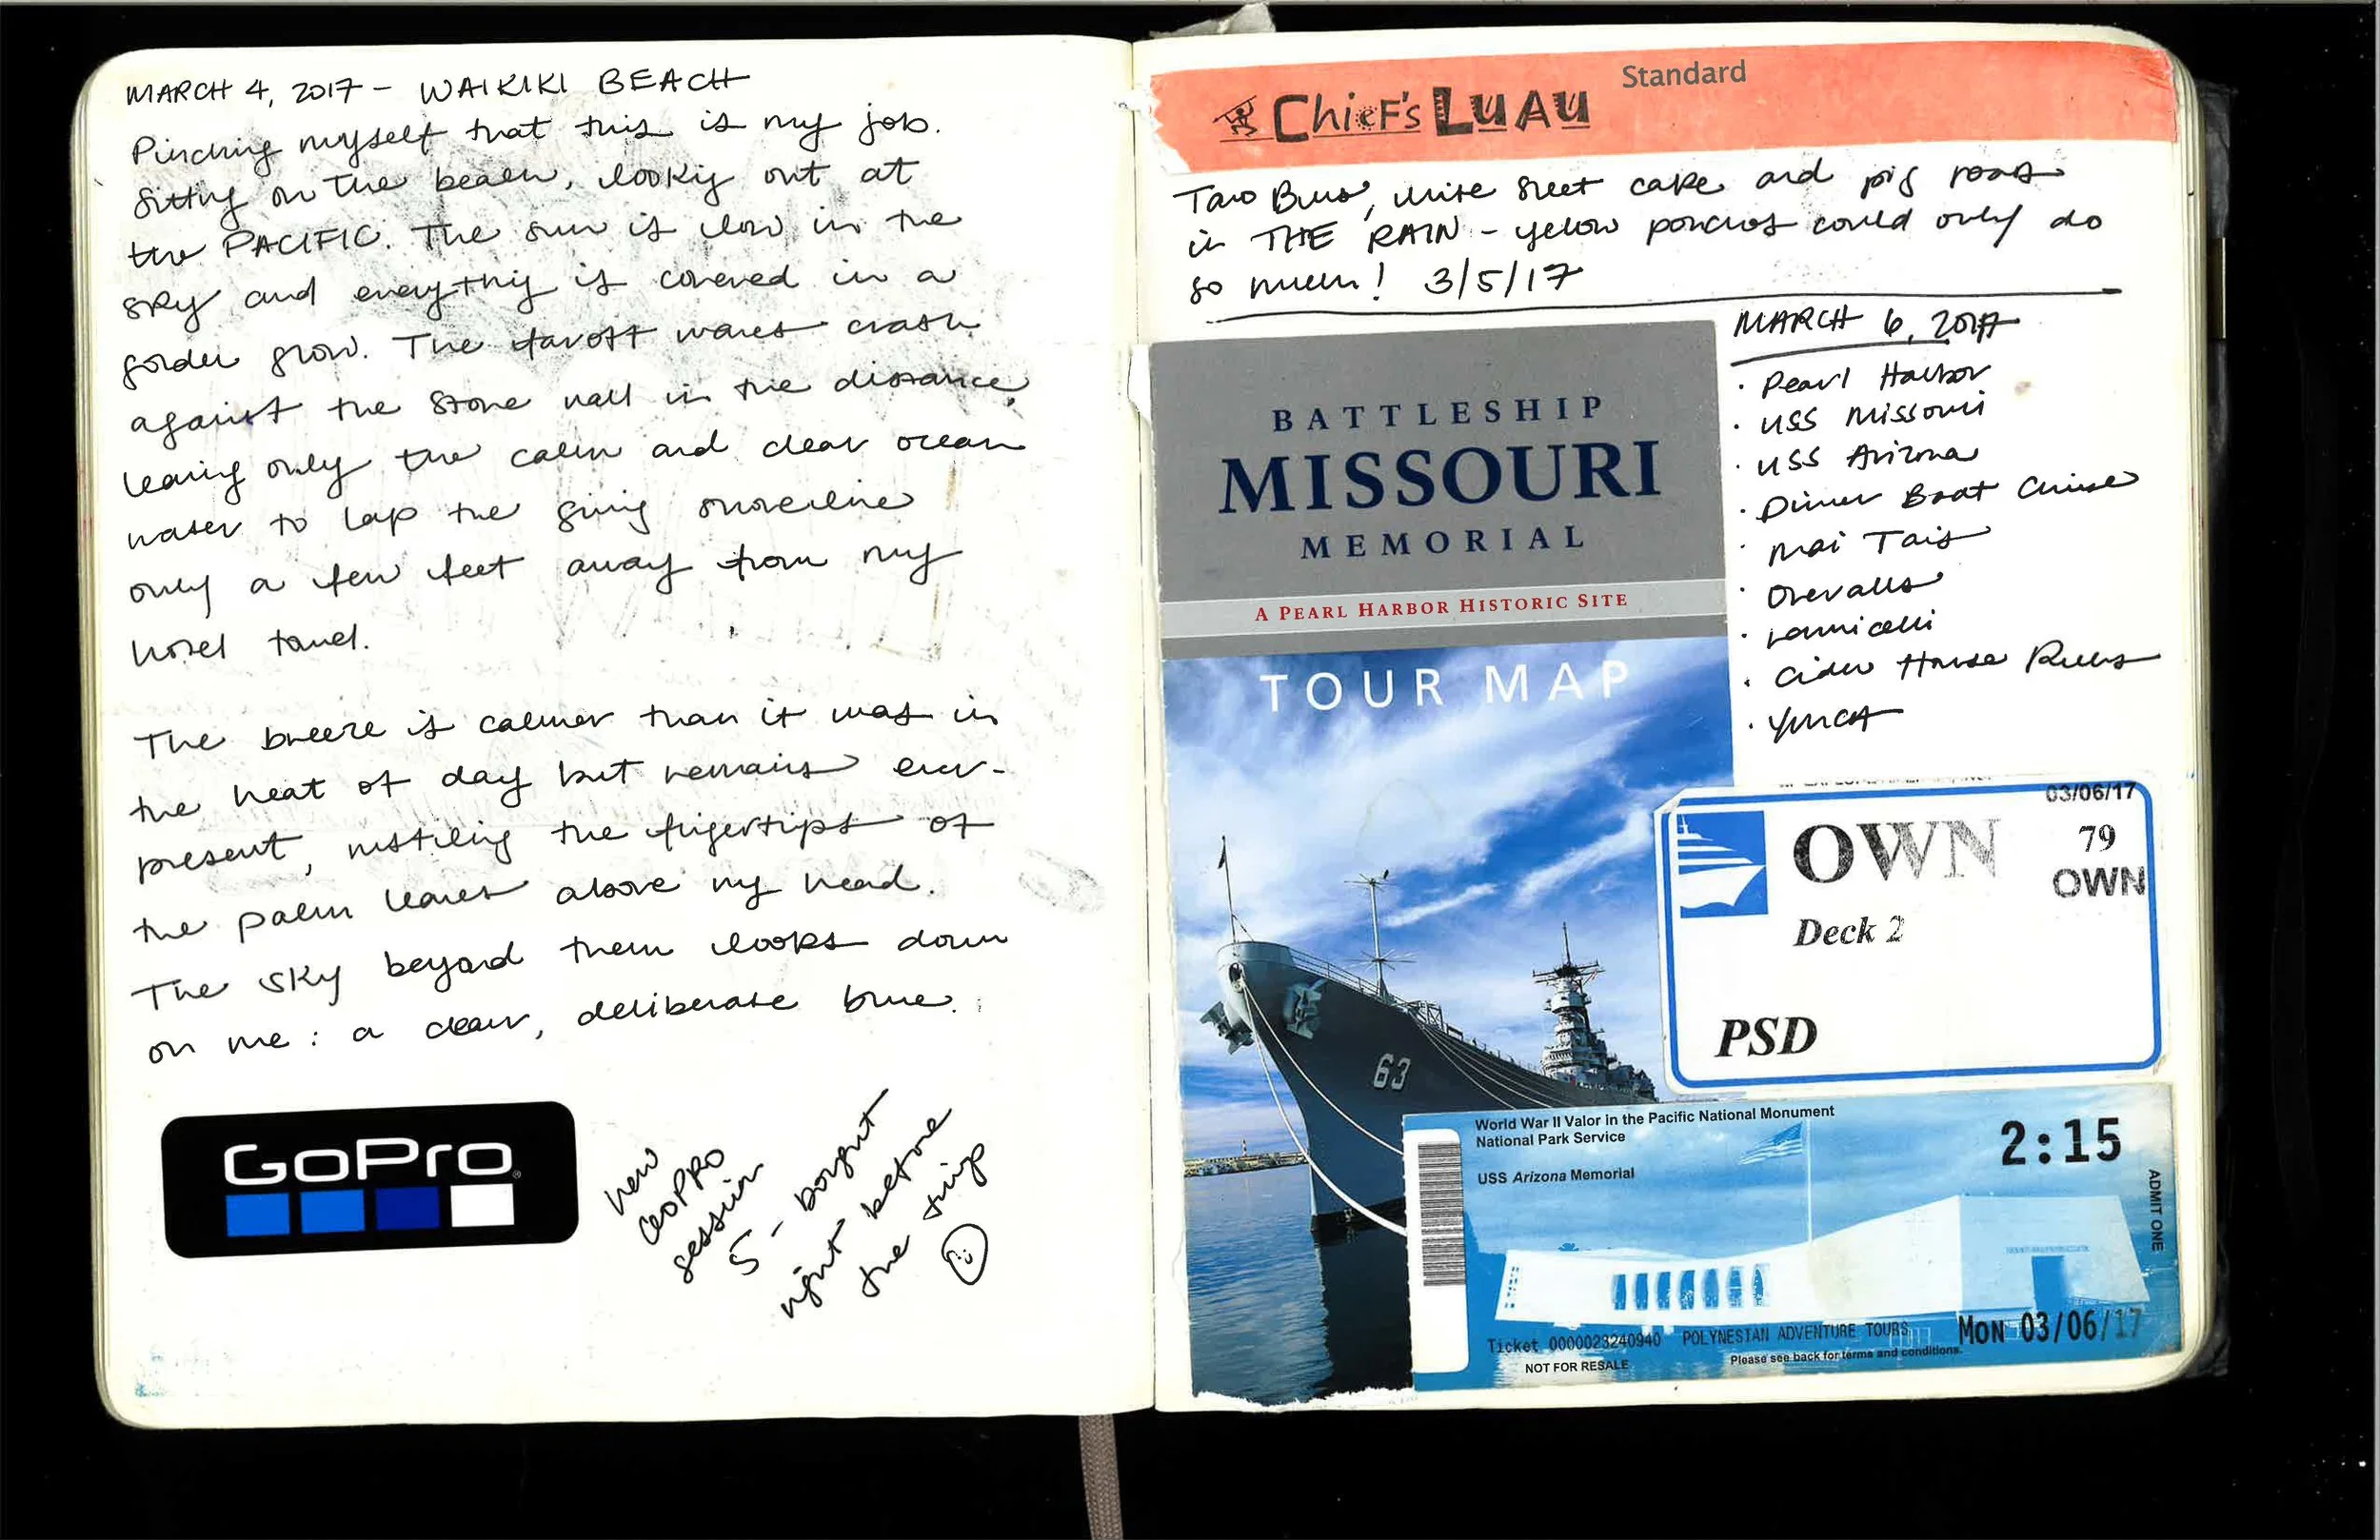 MARCH 4, 2017 - WAIKIKI BEACH
Pinching myself that this is my job.
Sitting on the beach, looking out at
the PACIFIC. The sun is low in the
sky and everything is covered in a
golden glow. The faroff waves crash
against the stone wall in the distance,
leaving only the calm and clear ocean
water to lap the giving shoreline
only a few feet away from my
hotel towel.
The breeze is calmer than it was in
the heat of day but remains ever-
present, rustling the fingertips of
the palm leaves above my head.
The sky beyond them looks down
on me: a clear, deliberate blue.
GoPro
new
GoPRO
session
5 - bought
right before
the trip
Standard
Chief's LUAU
Taro Buns, white sheet cake and pig roast
in THE RAIN - yellow ponchos could only do
so much! 3/5/17
MARCH 6, 2017
· Pearl Harbor
· USS Missouri
· USS Arizona
· Dinner Boat Cruise
· Mai Tais
· Overalls
· Cider House Rules
· YMCA
BATTLESHIP
MISSOURI
MEMORIAL
A PEARL HARBOR HISTORIC SITE
TOUR MAP
63
03/06/17
OWN
79
OWN
Deck 2
PSD
World War II Valor in the Pacific National Monument
National Park Service
USS Arizona Memorial
2:15
ADMIT ONE
Ticket 0000023240940 POLYNESIAN ADVENTURE TOURS
Mon 03/06/17
NOT FOR RESALE
Please see back for terms and conditions.